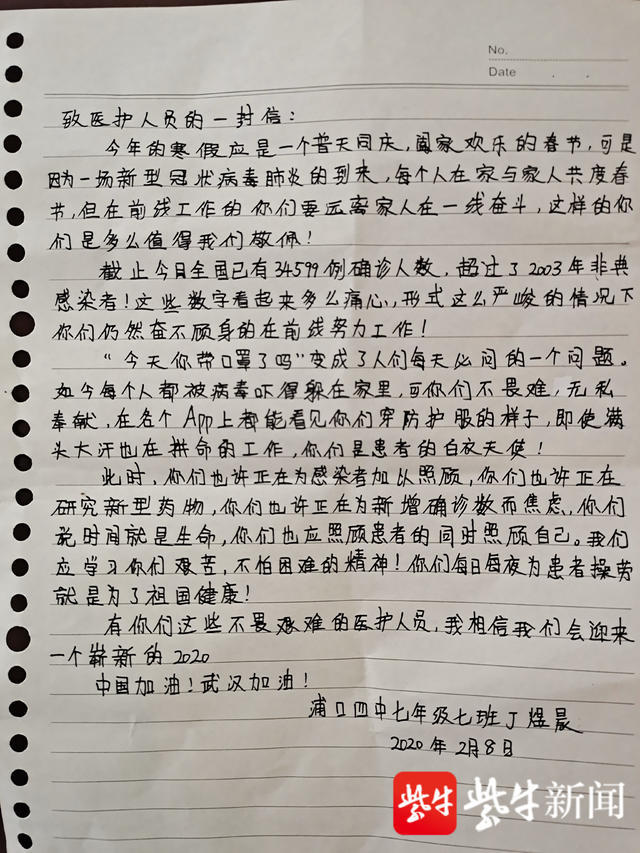 No.
Date . .
致医护人员的一封信：
今年的寒假应是一个普天同庆，阖家欢乐的春节，可是
因为一场新型冠状病毒肺炎的到来，每个人在家与家人共度春
节，但在前线工作的你们要远离家人在一线奋斗，这样的你
们是多么值得我们敬佩！
截止今日全国已有34599例确诊人数，超过了2003年非典
感染者！这些数字看起来多么痛心，形式这么严峻的情况下
你们仍然奋不顾身的在前线努力工作！
“今天你带口罩了吗”变成了人们每天必问的一个问题。
如今每个人都被病毒吓得躲在家里，可你们不畏难，无私
奉献，在各个App上都能看见你们穿防护服的样子，即使满
头大汗也在拼命的工作，你们是患者的白衣天使！
此时，你们也许正在为感染者加以照顾，你们也许正在
研究新型药物，你们也许正在为新增确诊数而焦虑，你们
说时间就是生命，你们也应照顾患者的同时照顾自己。我们
应学习你们艰苦，不怕困难的精神！你们每日每夜为患者操劳
就是为了祖国健康！
有你们这些不畏艰难的医护人员，我相信我们会迎来
一个崭新的2020
中国加油！武汉加油！
浦口四中七年级七班丁煜晨
2020年2月8日
紫牛 紫牛新闻